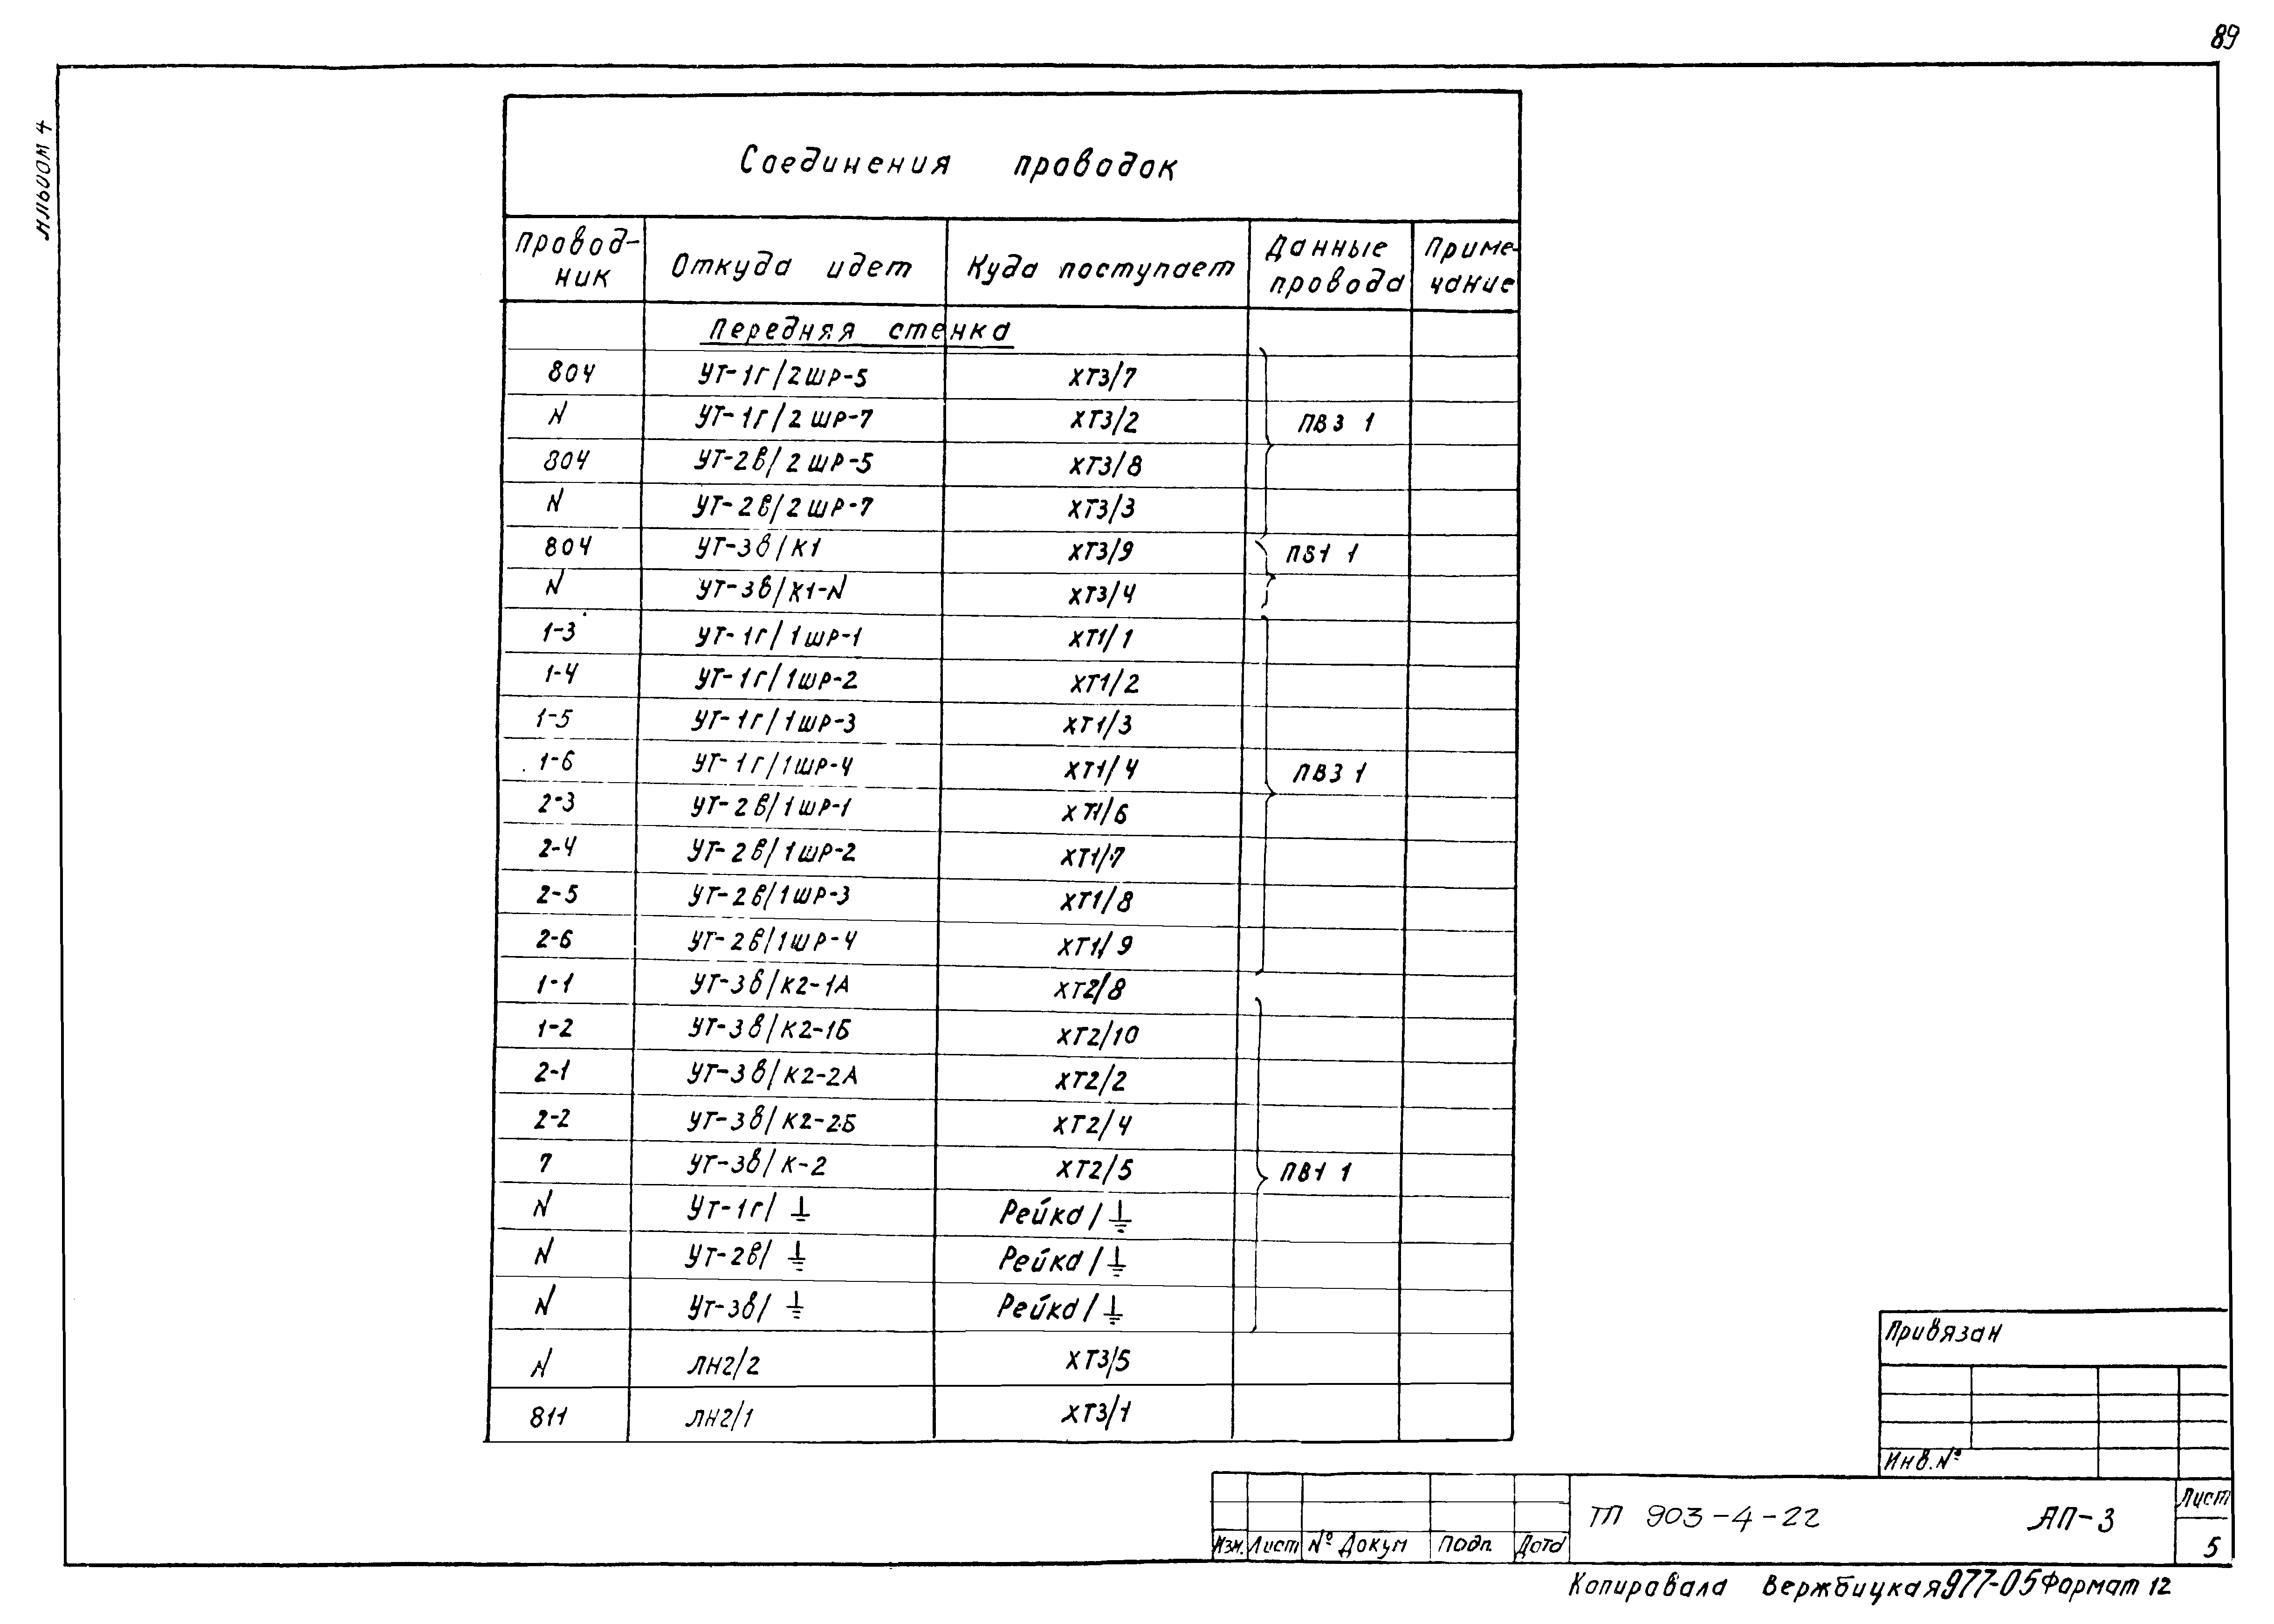 89
Альбом 4
Соединения проводок
Провод-
ник
Откуда идет
Куда поступает
Данные
провода
Приме-
чание
Передняя стенка
804 УТ-1г/2ШР-5 ХТ3/7
N УТ-1г/2ШР-7 ХТ3/2 ПВ3 1
804 УТ-2в/2ШР-5 ХТ3/8
N УТ-2в/2ШР-7 ХТ3/3
804 УТ-3в/К1 ХТ3/9 ПВ1 1
N УТ-3в/К1-N ХТ3/4
1-3 УТ-1г/1ШР-1 ХТ1/1
1-4 УТ-1г/1ШР-2 ХТ1/2
1-5 УТ-1г/1ШР-3 ХТ1/3
1-6 УТ-1г/1ШР-4 ХТ1/4 ПВ3 1
2-3 УТ-2в/1ШР-1 ХТ1/6
2-4 УТ-2в/1ШР-2 ХТ1/7
2-5 УТ-2в/1ШР-3 ХТ1/8
2-6 УТ-2в/1ШР-4 ХТ1/9
1-1 УТ-3в/К2-1А ХТ2/8
1-2 УТ-3в/К2-1Б ХТ2/10
2-1 УТ-3в/К2-2А ХТ2/2
2-2 УТ-3в/К2-2Б ХТ2/4
7 УТ-3в/К-2 ХТ2/5 ПВ1 1
N УТ-1г/⏚ Рейка/⏚
N УТ-2в/⏚ Рейка/⏚
N УТ-3в/⏚ Рейка/⏚
N ЛН2/2 ХТ3/5
811 ЛН2/1 ХТ3/1
Привязан
Инв. №
Изм. Лист № Докум Подп. Дата
ТП 903-4-22 АП-3
Лист
5
Копировала Вержбицкая 977-05 Формат 12